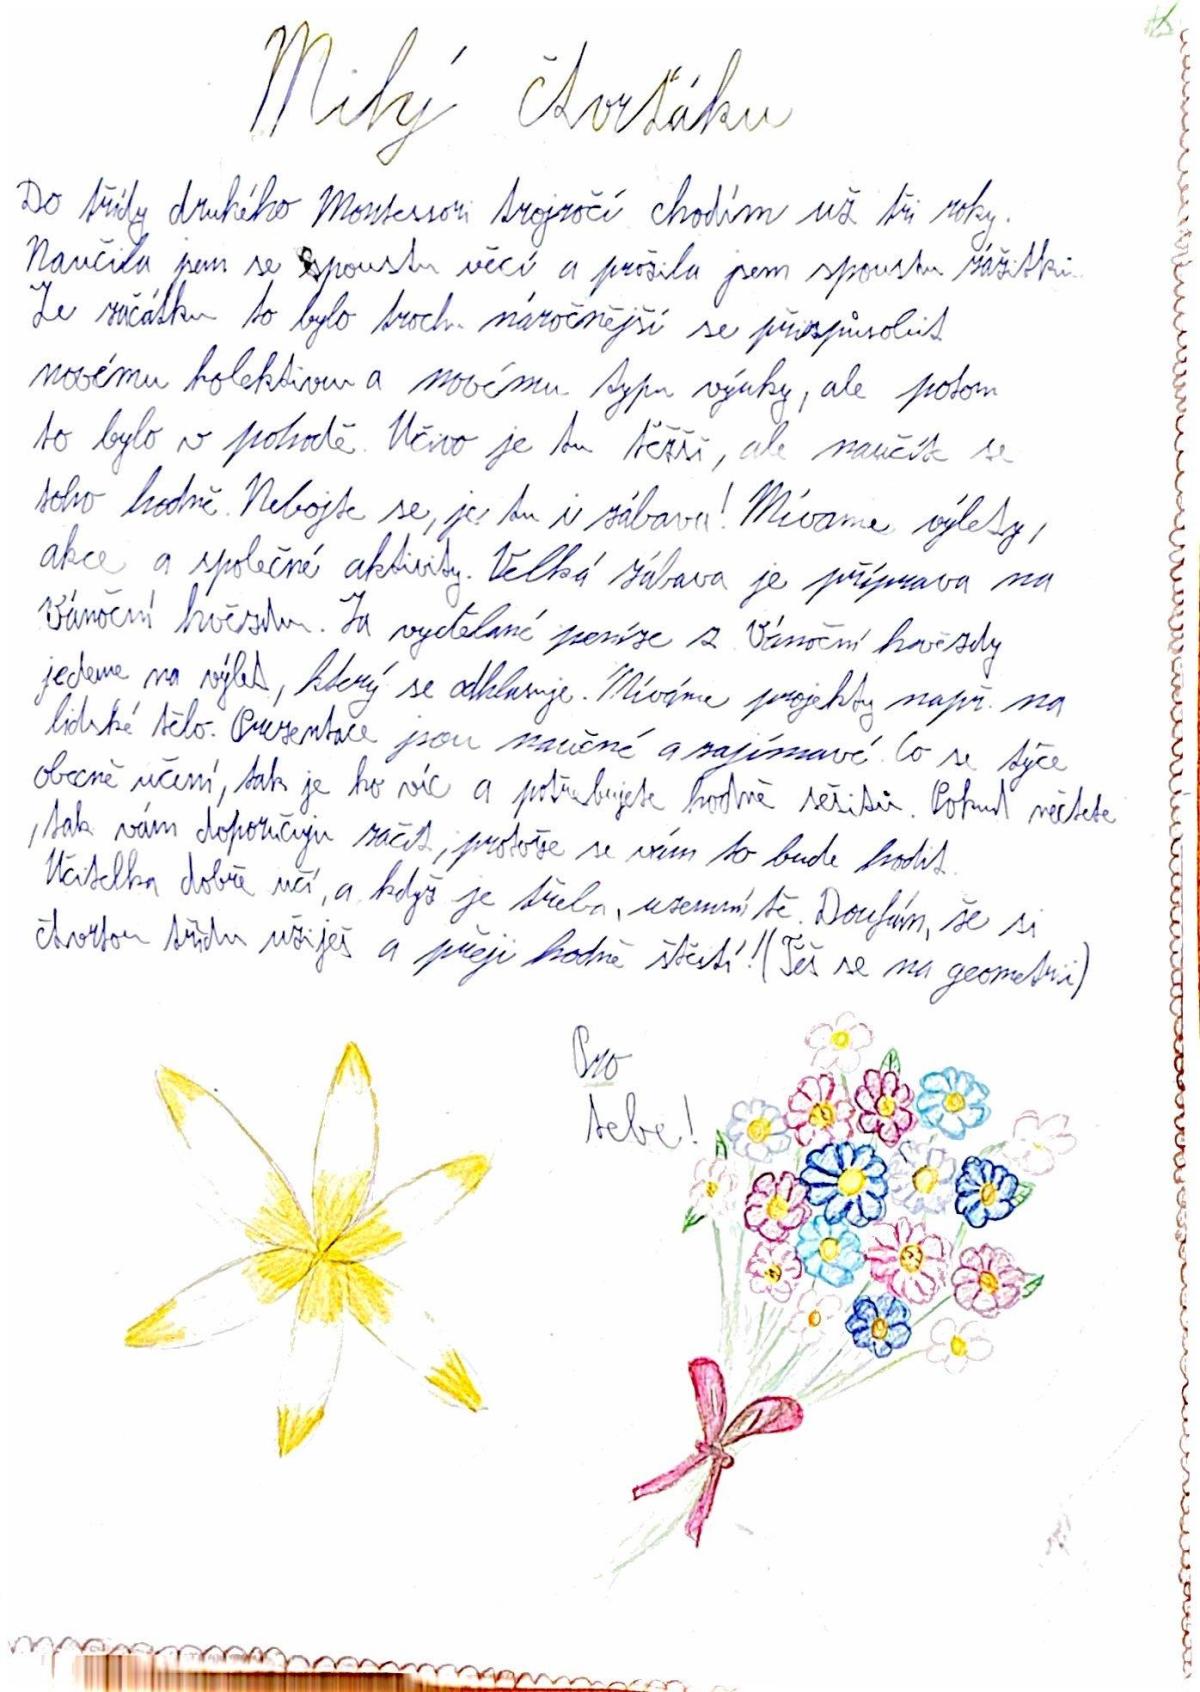 Milý čtvrťáku
Do třídy druhého Montessori trojročí chodím už tři roky.
Naučila jsem se spoustu věcí a prožila jsem spoustu zážitků.
Ze začátku to bylo troch. náročnější se přizpůsobit
novému kolektivu a novému typu výuky, ale potom
to bylo v pohodě. Učivo je tu těžší, ale naučíš se
toho hodně. Nebojte se, je tu i zábava! Míváme výlety,
akce a společné aktivity. Velká zábava je příprava na
Vánoční hvězdu. Za vydělané peníze z Vánoční hvězdy
jedeme na výlet, který se odhlasuje. Míváme projekty např. na
lidské tělo. Prezentace jsou naučné a zajímavé. Co se týče
obecně učení, tak je ho víc a potřebujete hodně sešitů. Pokud nečtete
, tak vám doporučuju začít, protože se vám to bude hodit.
Učitelka dobře učí, a když je třeba, uzemní tě. Doufám, že si
čtvrtou třídu užiješ a přeji hodně štěstí! (Těš se na geometrii)
Pro
tebe!